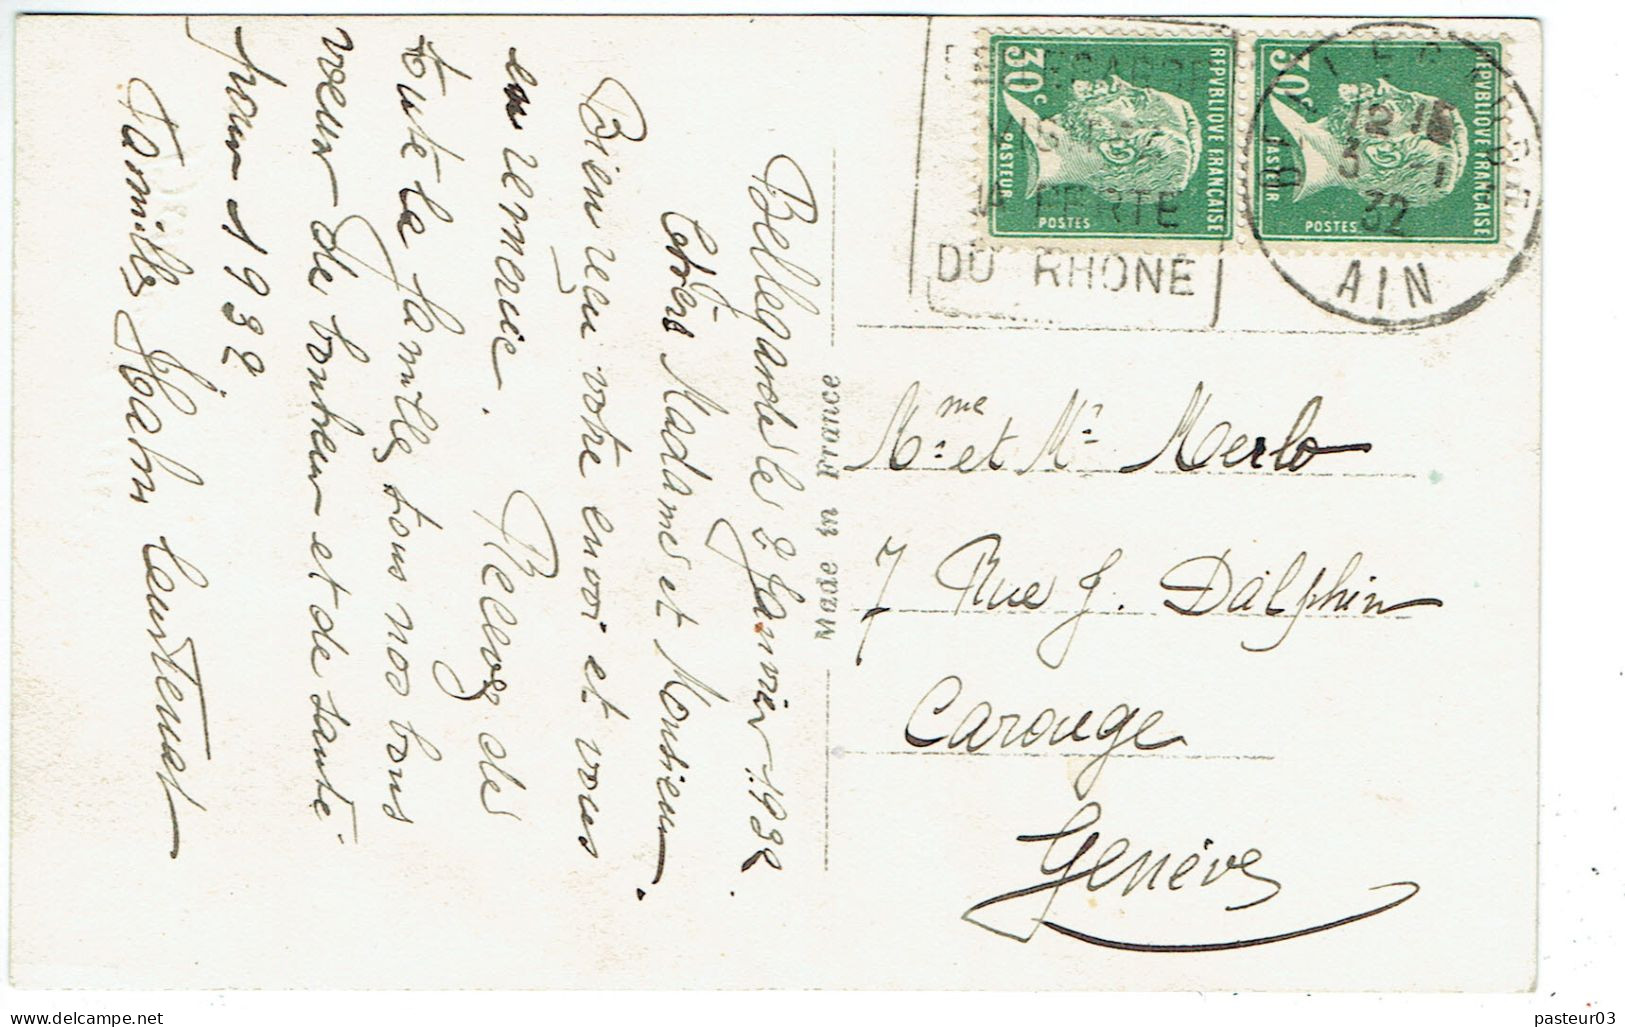 Bellegarde le 2 Janvier 1932.
Chers Madame et Monsieur.
Bien reçu votre envoi et vous
en remercie. Recevez de
toute la famille, tous nos bons
voeux de bonheur et de santé
pour 1932.
Famille Hahn
Made in France
30c
REPVBLIQVE FRANÇAISE
PASTEUR
POSTES
30c
REPVBLIQVE FRANÇAISE
PASTEUR
POSTES
LA PERTE
DU RHONE
BELLEGARDE
12
3 -1
32
AIN
Mme et Mr Merlo
7 Rue J. Dalphin
Carouge
Genève
pasteur03
www.delcampe.net